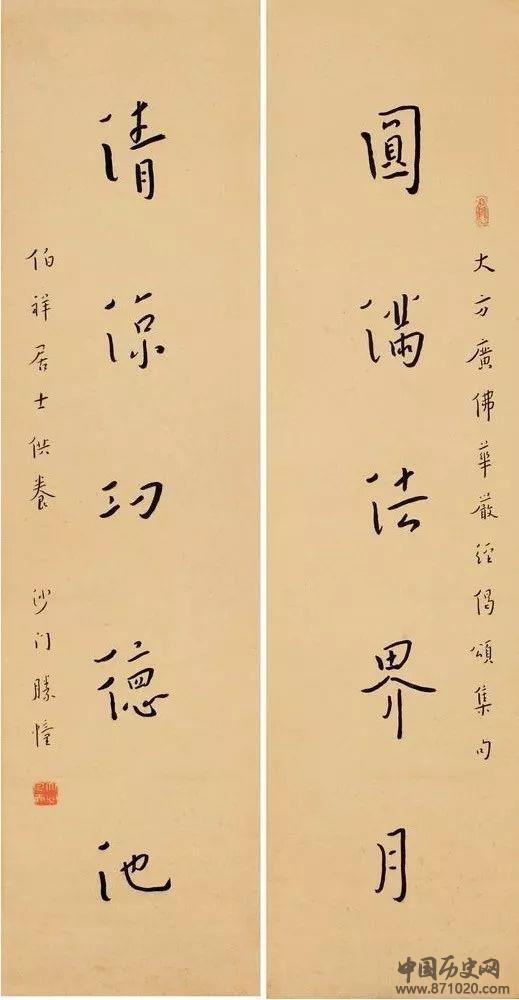 大方廣佛華嚴經偈頌集句
圓滿法界月
清涼功德池
伯祥居士供養 沙门勝幢
中国历史网
www.871020.com